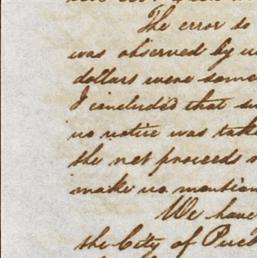 The error to
was observed by
dollars were some
I concluded that
no notice was take
the net proceeds
make no mention
We have
the City of